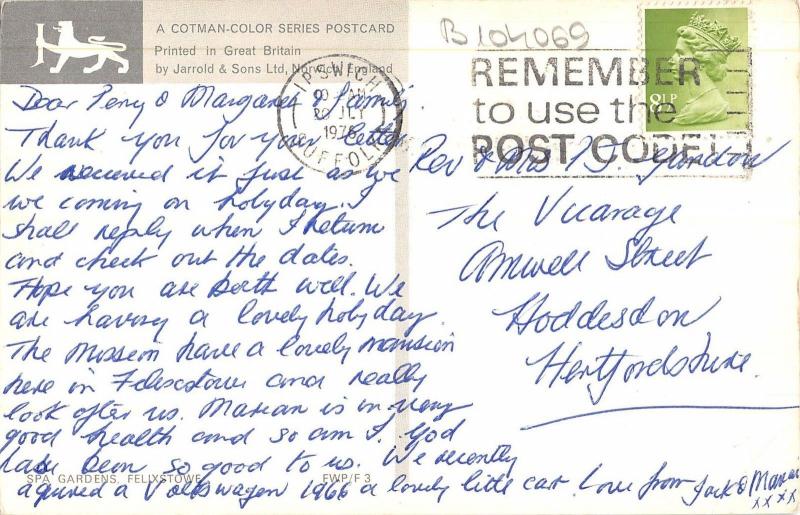 A COTMAN-COLOR SERIES POSTCARD
Printed in Great Britain
by Jarrold & Sons Ltd, Norwich, England
B104069
IPSWICH
AM
20 JLY
1976
SUFFOLK
REMEMBER
to use the
POST CODE!
8½P
Dear Percy & Margaret & family.
Thank you for your letter
We received it just as we
we coming on holyday. I
shall reply when I return
and check out the dates.
Hope you are both well. We
are having a lovely holyday.
The Mission have a lovely mansion
here in Felixstowe and really
look after us. Marian is in very
good health and so am I. God
has been so good to us. We recently
aquired a Volkswagen 1966 a lovely little car. Love from Jack & Marian
xxxx
Rev & Mrs P.J. Gordon
The Vicarage
Amwell Street
Hoddesdon
Hertfordshire.
SPA GARDENS, FELIXSTOWE
FWP/F 3